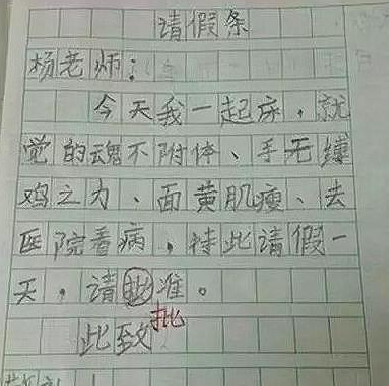 请假条
杨老师：
今天我一起床，就
觉的魂不附体、手无缚
鸡之力、面黄肌瘦、去
医院看病，特此请假一
天，请批准。
批
此致